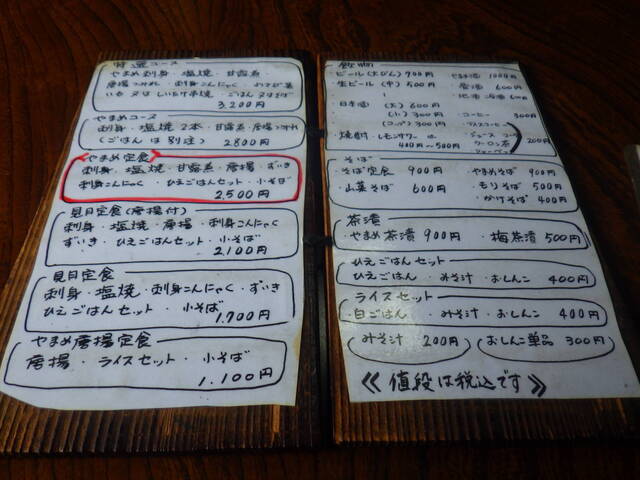 特選コース
やまめ刺身・塩焼・甘露煮
唐揚 刺身こんにゃく
いも又はしいたけ串焼・ごはん又はそば
3,200円
やまめコース
刺身・塩焼2本・甘露煮・唐揚
(ごはんは別注) 2800円
やまめ定食
刺身・塩焼・甘露煮・唐揚・ずいき
刺身こんにゃく・ひえごはんセット・小そば
2,500円
見月定食(唐揚付)
刺身・塩焼・唐揚・刺身こんにゃく
ずいき・ひえごはんセット・小そば
2,100円
見月定食
刺身・塩焼・刺身こんにゃく・ずいき
ひえごはんセット・小そば
1,700円
やまめ唐揚定食
唐揚・ライスセット・小そば
1,100円
飲物
・ビール(大びん) 700円
・生ビール(中) 500円
・日本酒 (大) 600円
(小) 300円
(コップ) 300円
・焼酎・レモンサワー
400円~500円
やまめ酒 1000円
600円
・コーヒー 300円
・ジュース コーラ
ウーロン茶
200円
そば
・そば定食 900円 やまめそば 900円
・山菜そば 600円 ・もりそば 500円
・かけそば 400円
茶漬
・やまめ茶漬 900円 ・梅茶漬 500円
ひえごはんセット
ひえごはん・みそ汁・おしんこ 400円
ライスセット
・白ごはん・みそ汁・おしんこ 400円
みそ汁 200円 おしんこ単品 300円
≪ 値段は税込です ≫